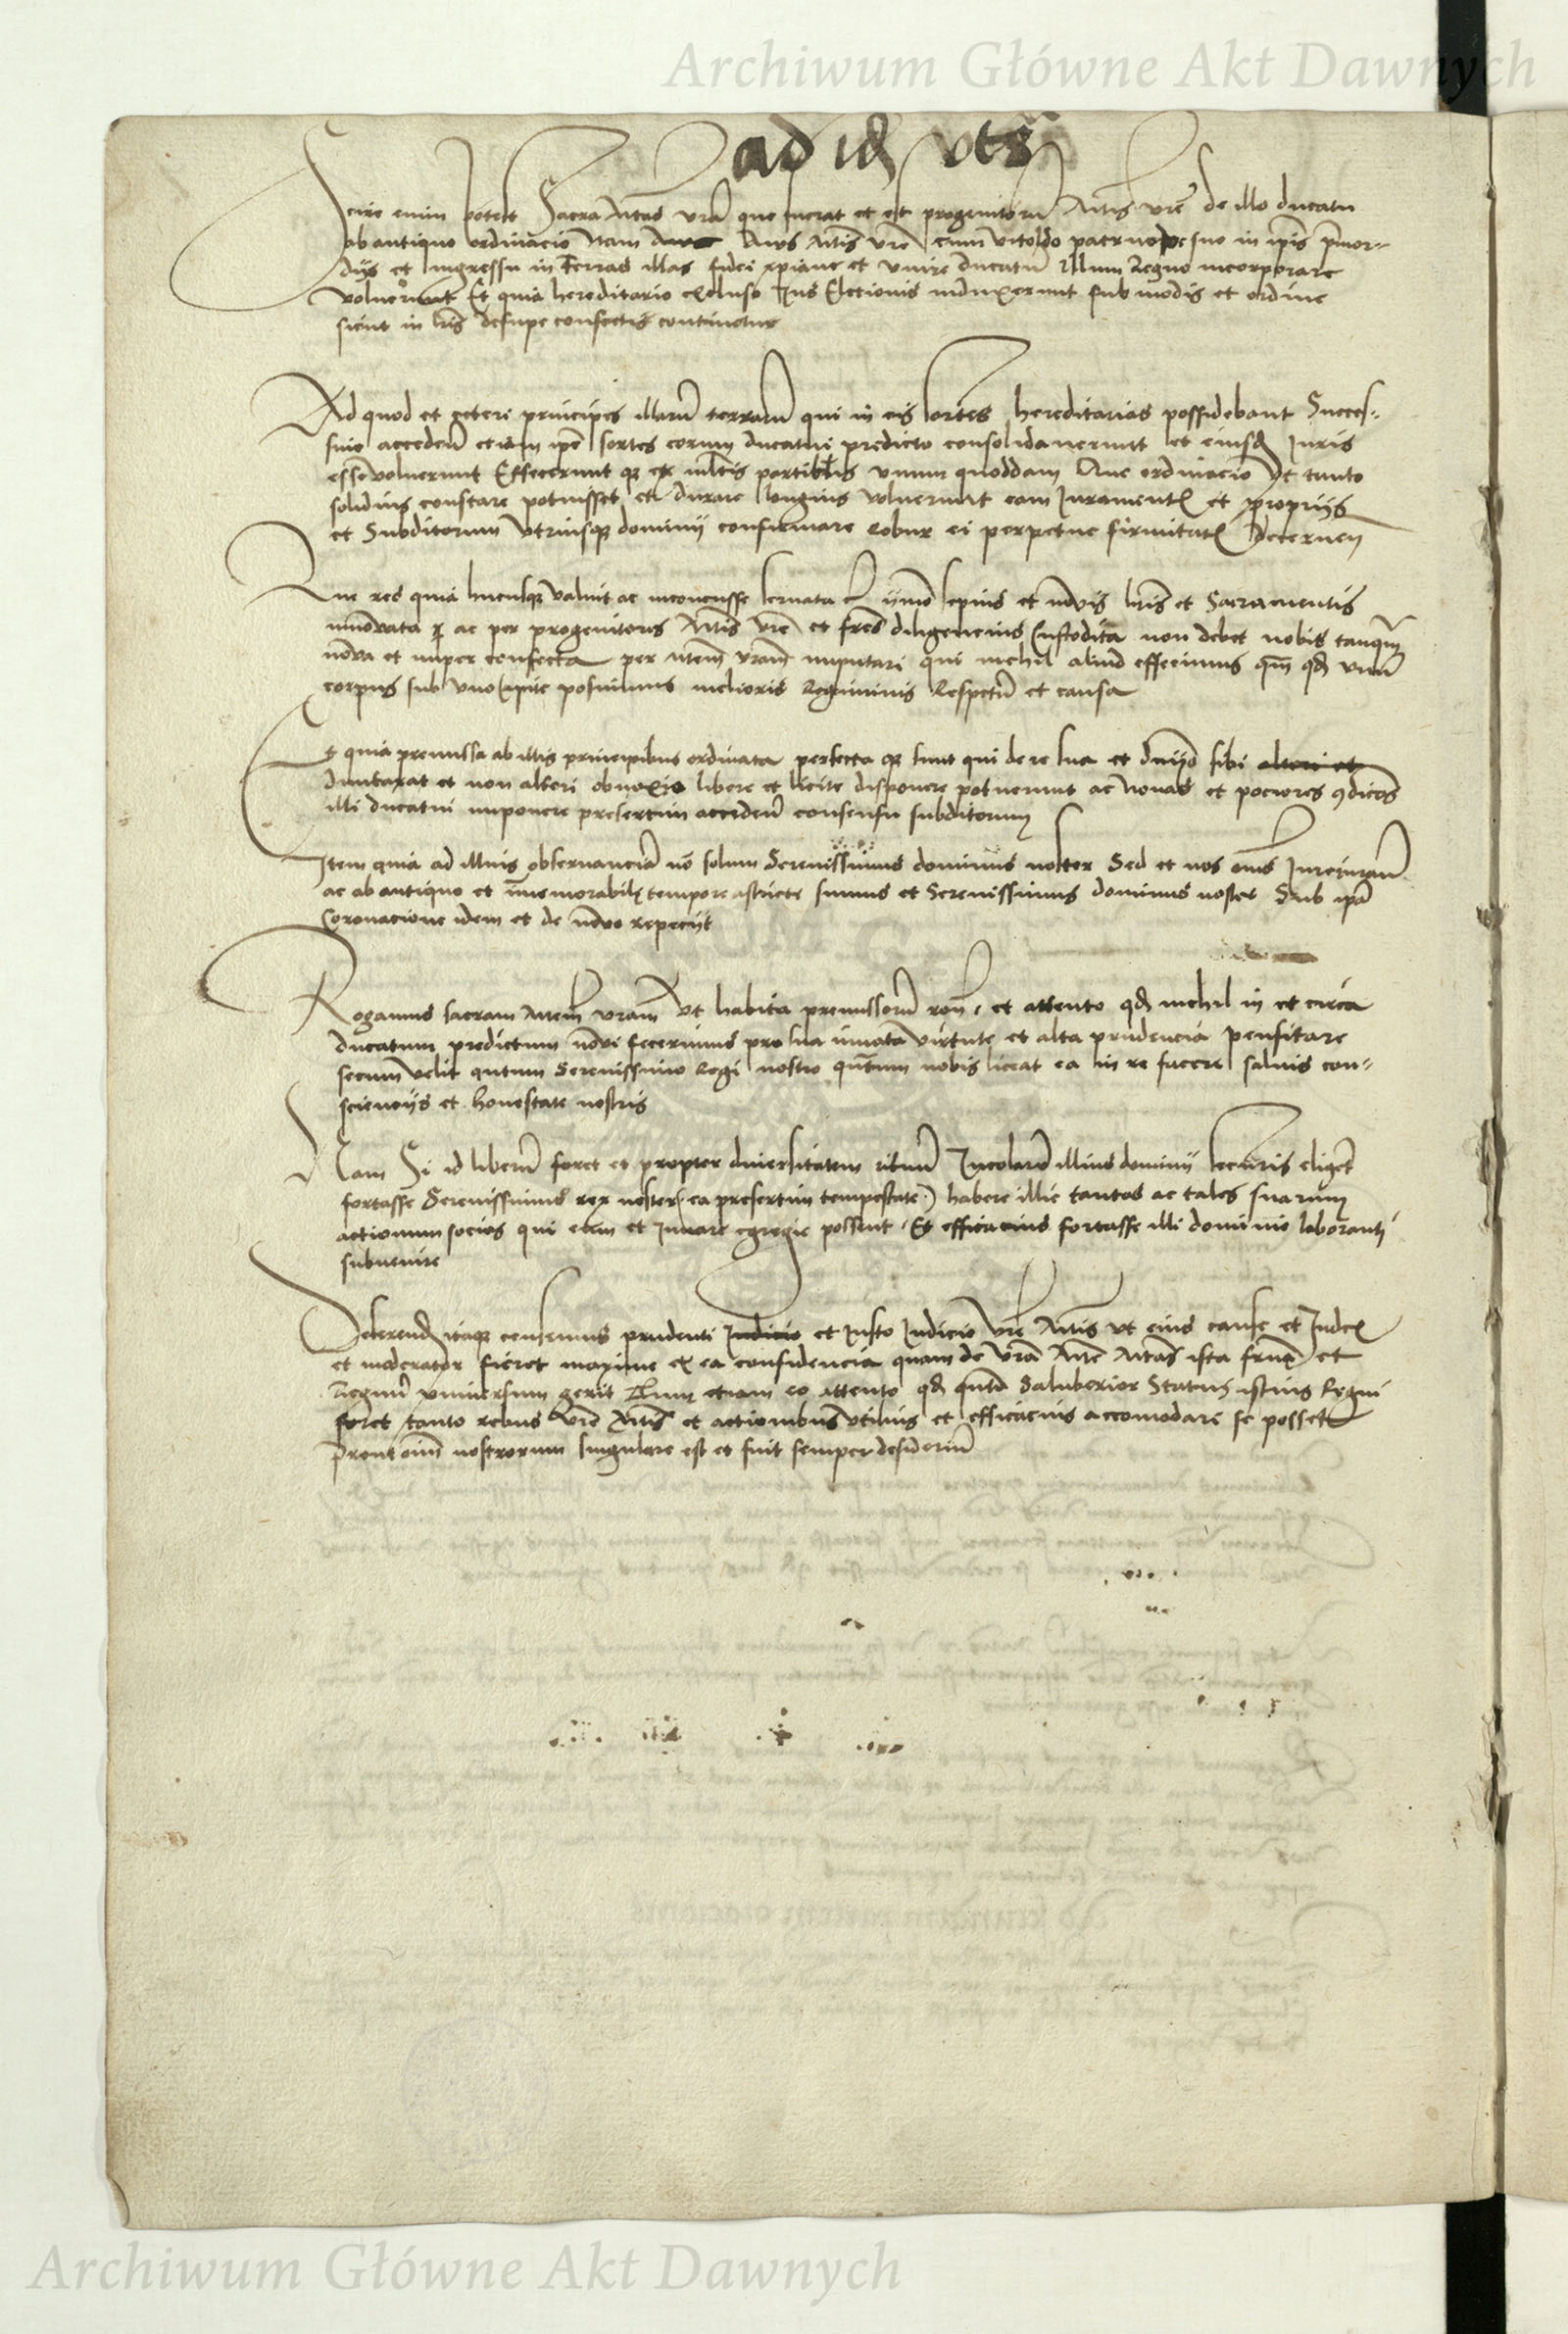 Archiwum Główne Akt Dawnych
ad id
Scire enim potest Sacra Mtas vra que fuerat et est progenitorũ Mtis vre de illo ducatu
ab antiquo ordinacio Nam Avus Mtis vre cum vitoldo patruo suo in ipis primor-
dijs et ingressu in terras illas fidei xpiane et unire ducatũ illum Regno incorporare
voluerunt Et quia hereditario excluso Ius Electionis induxerunt sub modis et ordine
sicut in lris desuper confectis continetur
Ad quod et ceteri principes illarũ terrarũ qui in eis sortes hereditarias possidebant Succes-
sive accedeñ eciam ipe sortes eorum ducatui predicto consolidaverunt et eiusd Iuris
esse voluerunt Effecerunt qz ex multis partibus unum quoddam Que ordinacio Vt tanto
solidius constare potuisset et durare longius voluerunt eam Iurament et proprijs
et Subditorum Vtriusqz dominij confirmare Robur ei perpetue firmitat Decerneñ
Que res quia hucusqz valuit ac inconcusse servata ymo sepius et novis lris et Sacramentis
innovata ac per progenitores Mtis Vre et fres diligencius Custodita non debet nobis tanqm
nova et nuper confecta per Mtem vram imputari qui nichil aliud effecimus qm qd unũ
corpus sub uno Capite posuimus melioris Regiminis Respectu et causa
Et quia premissa ab illis principibus ordinata perfecta qz sunt qui de re sua et sibi alteri et
duntaxat et non alteri obnoxio libere et licite disponere potuerunt ac Novas et pociores 9dicões
illi ducatui imponere presertim accedeñ consensu subditorum
Item quia ad illius observanciã nõ solum Serenissimus dominus noster Sed et nos oms Iureiurañ
ac ab antiquo et imemorabili tempore astricti sumus et Serenissimus dominus noster Sub ipa
Coronacione idem et de novo repeciit
Rogamus sacram Mtem vram Vt habita premissorũ roñe et attento qd nichil in et circa
ducatum predictum novi fecerimus pro sua innata virtute et alta prudencia pensitare
secum velit qntum Serenissimo Regi nostro qntum nobis liceat ea in re facere salvis con-
scienciis et honestate nostris
Nam Si id liberũ foret et propter diversitatem rituũ Incolarũ illius dominij securis eliget
fortasse Serenissimus rex noster (ea presertim tempestate) habere illic tantos ac tales suarum
actionum socios qui eum et Iuvare egregie possint Et efficacius fortasse illi dominio laboranti
subvenire
Deferend itaqz censemus prudenti Iudicio et Iusto Iudicio Vre Mtis Vt eius cause et Iudex
et moderator fieret maxime ex ea confidencia quam de Vra Mte Mtas ista et
Regnũ universum gerit Tum etiam eo attento qd qnto Saluberior Status istius Regni
foret tanto rebus Vre Mtis et actionibus Vtilius et efficacius accomodare se posset
Prout oim nostrorum singulare est et fuit semper desideriũ
Archiwum Główne Akt Dawnych